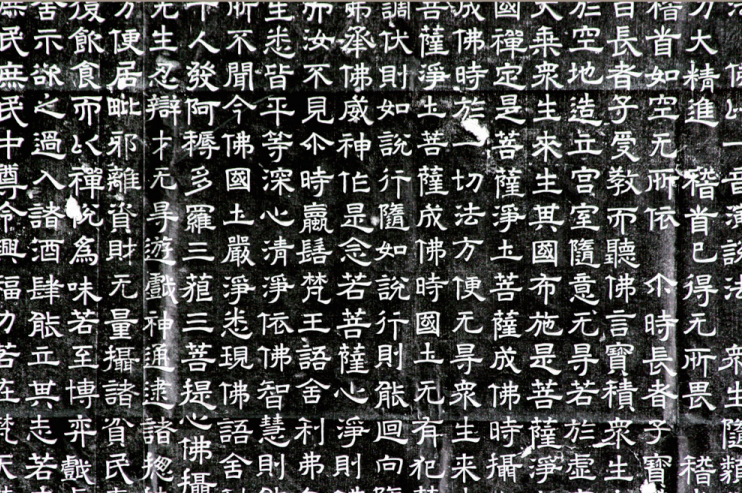 佛以一音演說法 衆生隨類
力大精進 稽首已得无所畏 稽
稽首如空无所依 尒時長者子寶
長者子受教而聽佛言寶積衆生
於空地造立宫室隨意无㝵若於虛
大乗衆生來生其國布施是菩薩淨
國禪定是菩薩淨土菩薩成佛時攝
成佛時於一切法方便无㝵衆生來
菩薩淨土菩薩成佛時國土无有犯
調伏則如說行隨如說行則能迴向
承佛威神作是念若菩薩心淨則
而汝不見尒時蠃髻梵王語舍利弗
生悉皆平等深心清淨依佛智慧則
所不聞今佛國土嚴淨悉現佛語舍
人發阿耨多羅三藐三菩提心佛攝
无生忍辯才无㝵遊戲神通逮諸揔
方便居毗邪離資財无量攝諸貧民
復飲食而以禪悅爲味若至博弈戲
舍示欲之過入諸酒肆能立其志若
庶民庶民中尊令興福力若在梵天